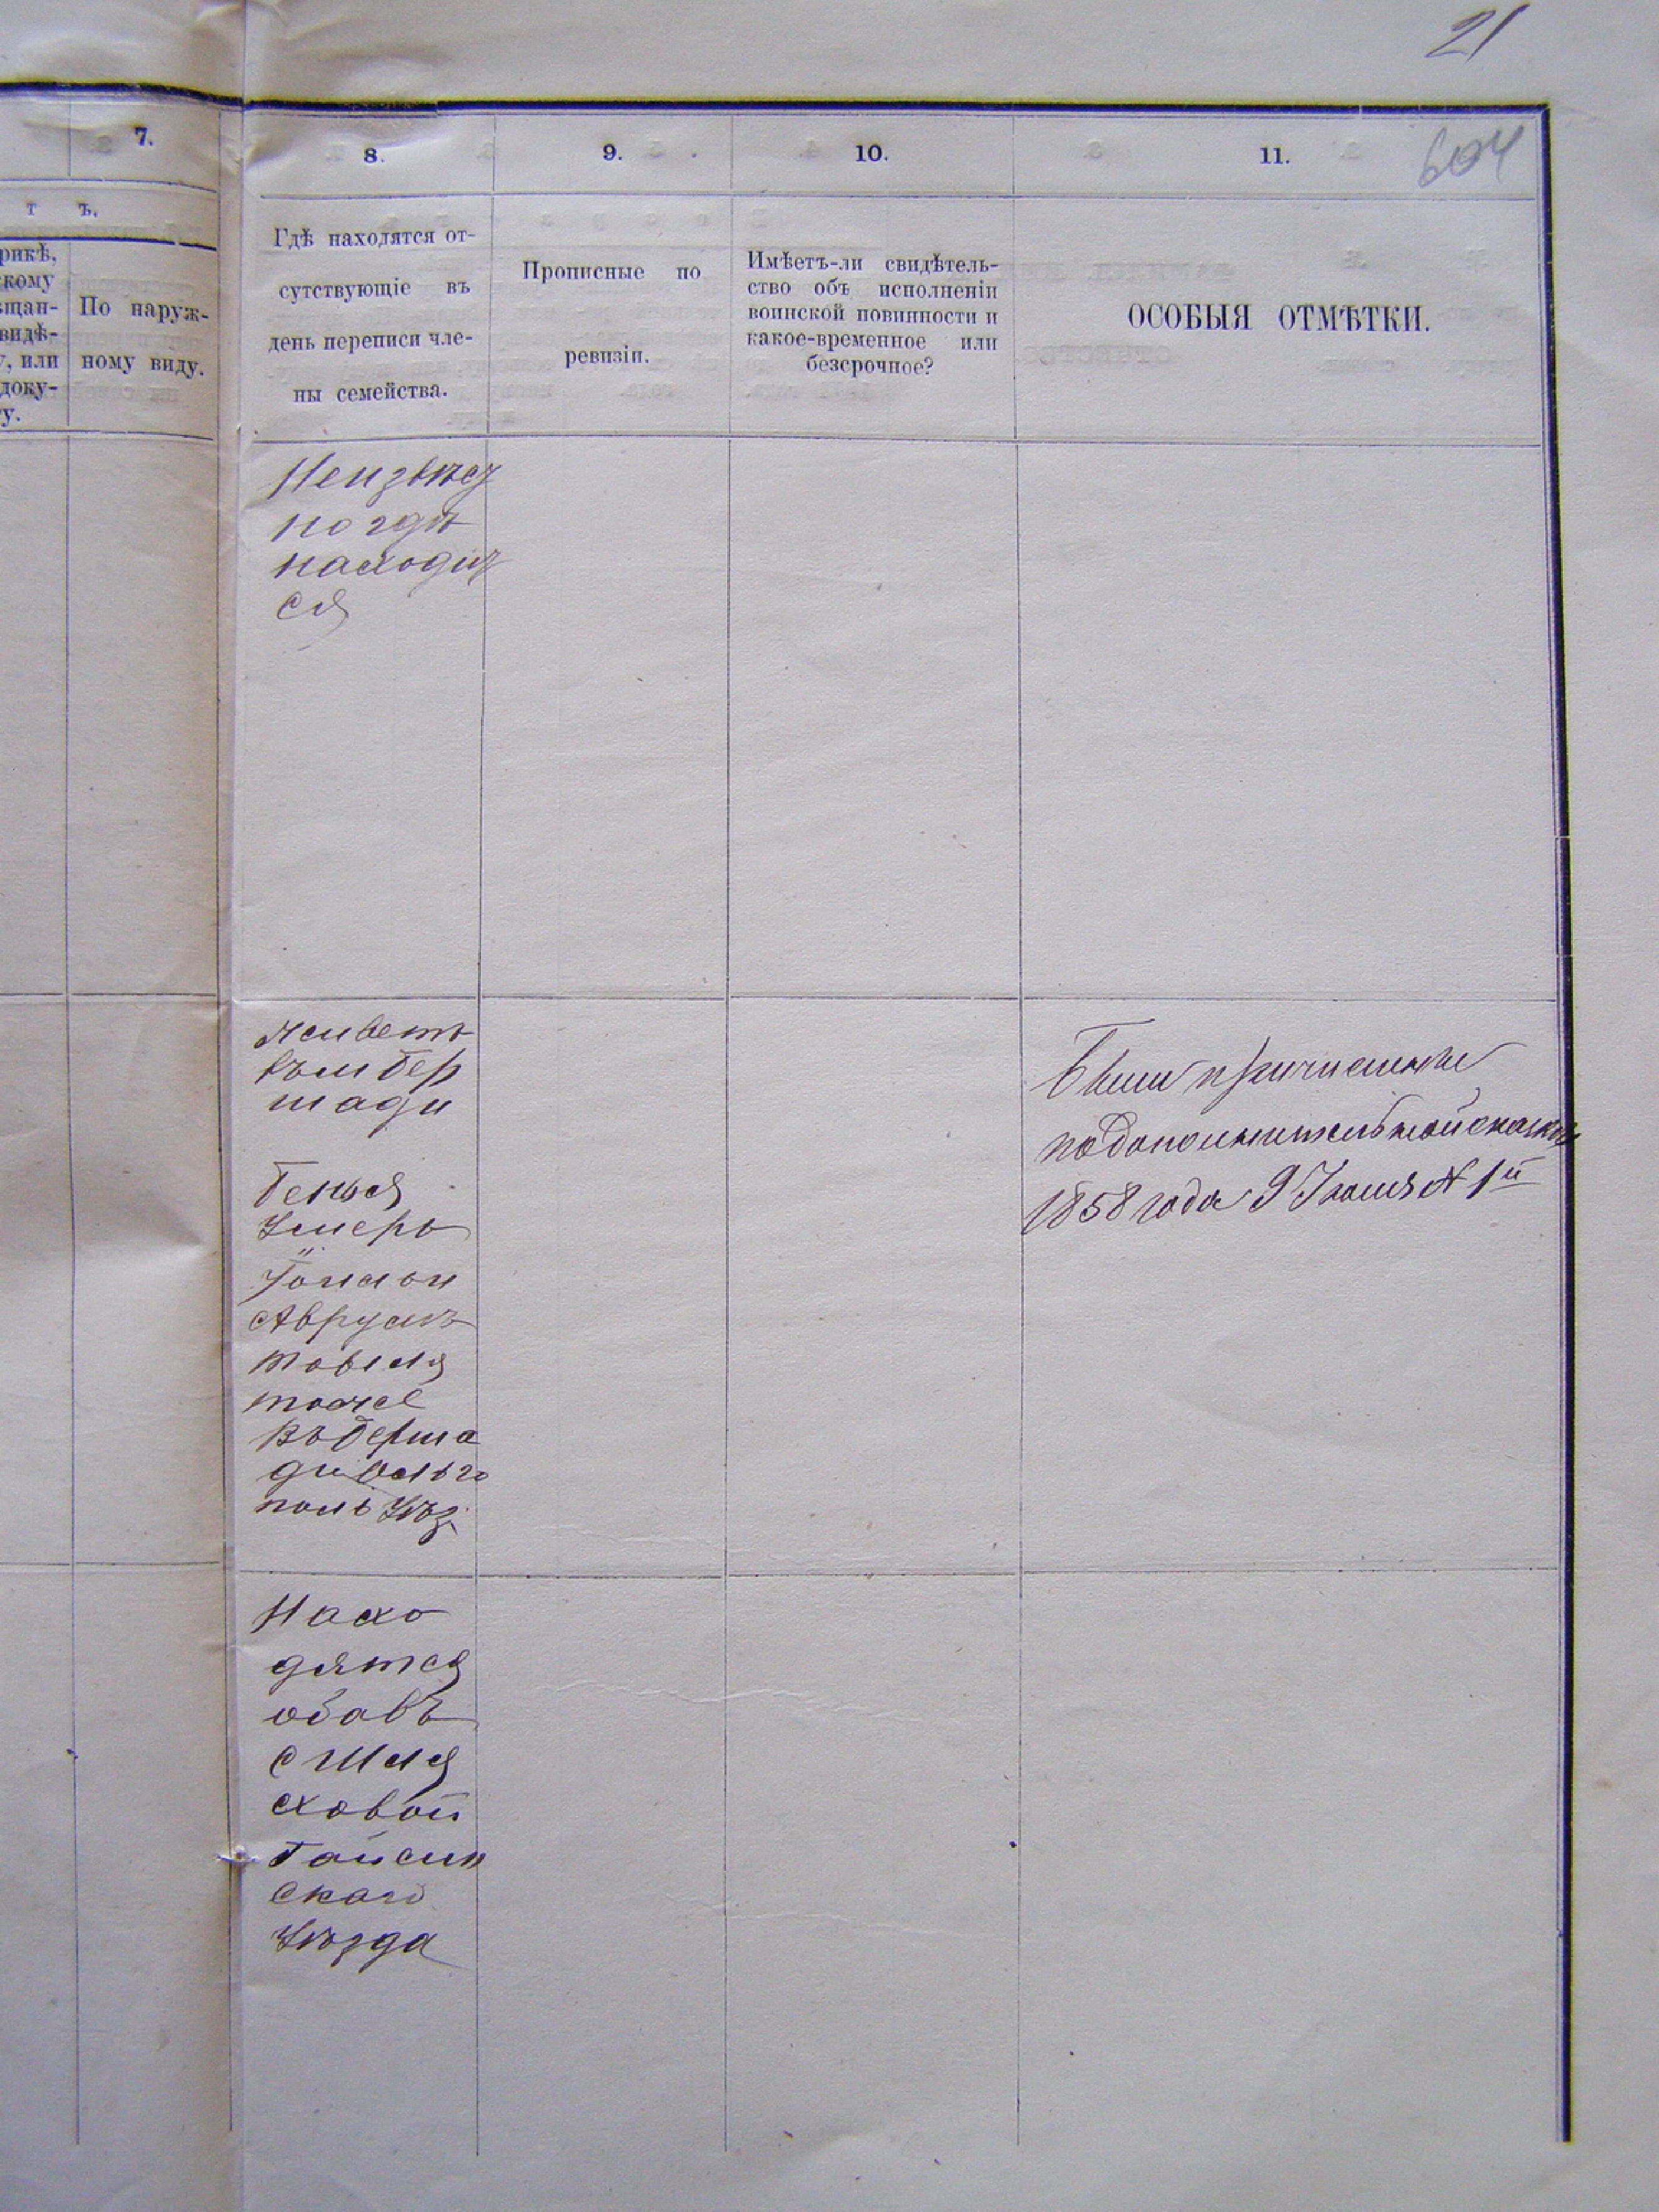 21
7.
8.
9.
10.
11.
604
т ъ.
рикѣ,
скому
ѣщан-
видѣ-
у, или
доку-
у.
По наруж-
ному виду.
Гдѣ находятся от-
сутствующіе въ
день переписи чле-
ны семейства.
Прописные по
ревизіи.
Имѣетъ-ли свидѣтель-
ство объ исполненіи
воинской повинности и
какое-временное или
безсрочное?
ОСОБЫЯ ОТМѢТКИ.
Неизвѣст
но гдѣ
находит
ся
живетъ
въ м Бер
шади
Бенься
Умеръ
Аврумъ
товля
тоже
въ Берша
ди Ольго
поль Уѣз.
Были причислены
по дополнительной сказкѣ
1858 года 9 Іюля № 1й
Нахо
дятся
оба въ
с Шля
ховой
Гайсин
скаго
Уѣзда